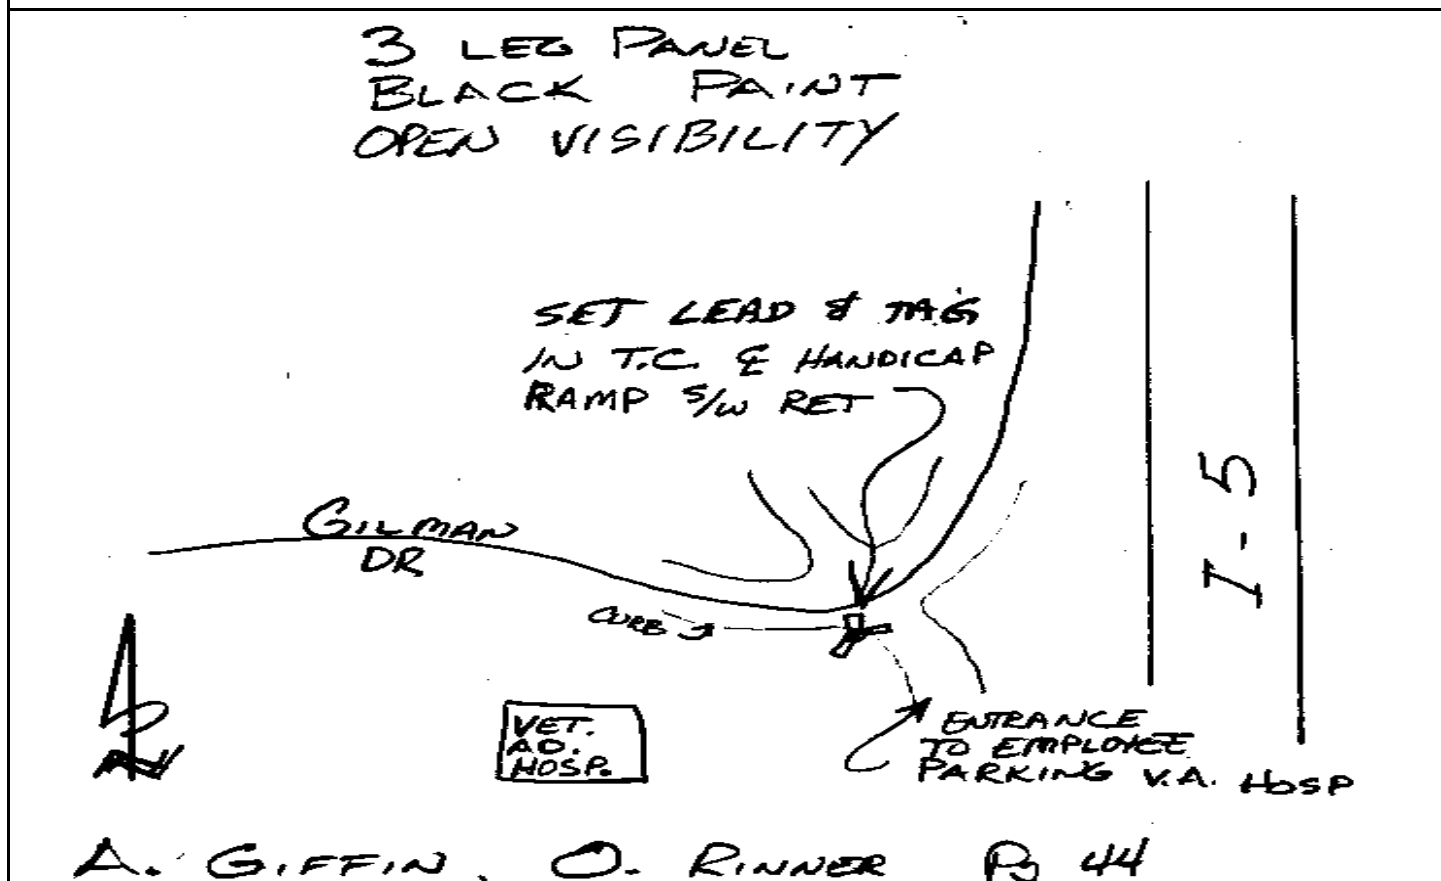 3 LEG PANEL
BLACK PAINT
OPEN VISIBILITY
SET LEAD & TAG
IN T.C. ℄ HANDICAP
RAMP S/W RET
GILMAN
DR
CURB
I-5
VET.
AD.
HOSP.
ENTRANCE
TO EMPLOYEE
PARKING V.A. HOSP
N
A. GIFFIN, O. RINNER Pg 44